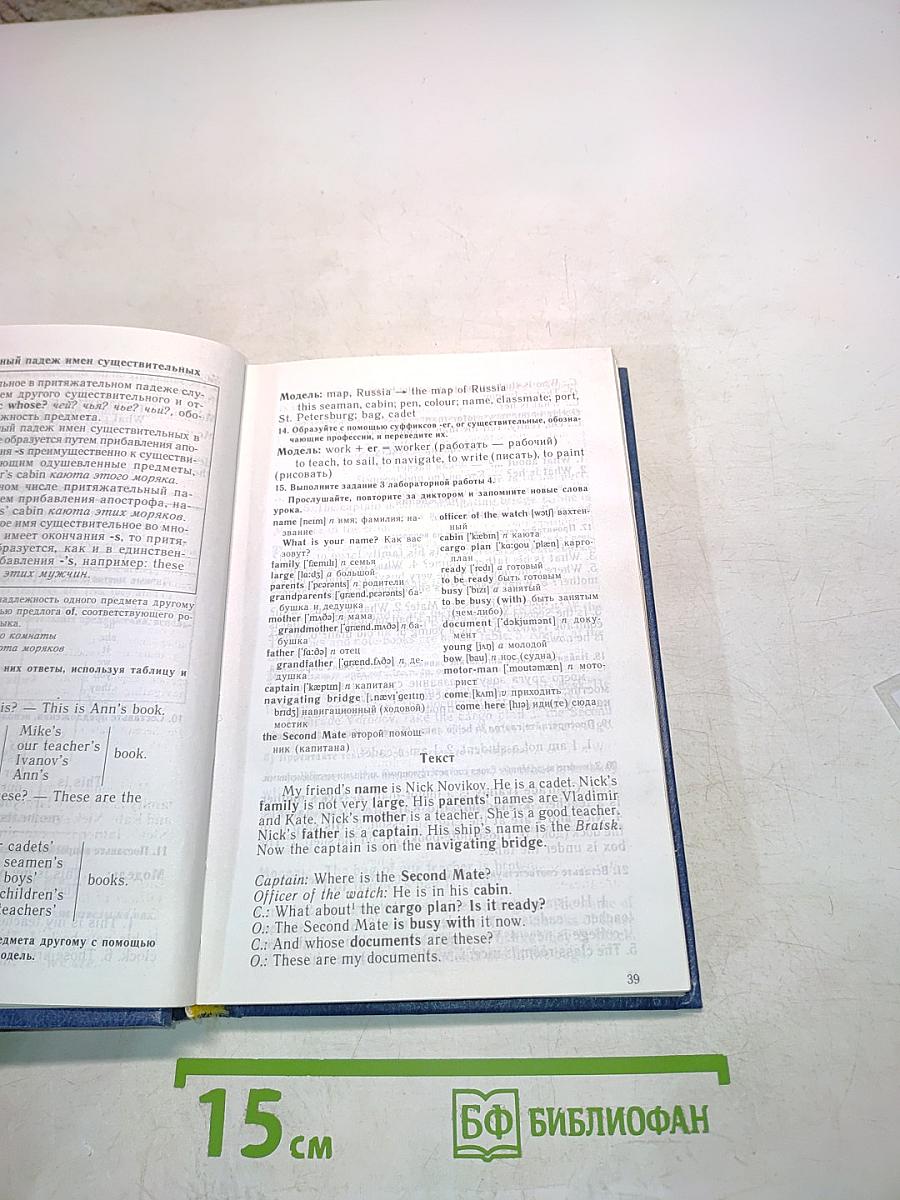 ный падеж имен существительных
льное в притяжательном падеже слу-
ем другого существительного и от-
с whose? чей? чья? чье? чьи?, обо-
жность предмета.
ный падеж имен существительных в
е образуется путем прибавления апо-
ния -s преимущественно к существи-
ющим одушевленные предметы,
r's cabin каюта этого моряка.
ном числе притяжательный па-
ем прибавления апострофа, на-
s' cabin каюта этих моряков.
ое имя существительное во мно-
имеет окончания -s, то притя-
бразуется, как и в единствен-
бавления -'s, например: these
этих мужчин.
надлежность одного предмета другому
ью предлога of, соответствующего ро-
ыка.
о комнаты
ота моряков
них ответы, используя таблицу и
is? — This is Ann's book.
Mike's
our teacher's
Ivanov's
Ann's
book.
ese? — These are the
r cadets'
seamen's
boys'
children's
teachers'
books.
едмета другому с помощью
одель.
Модель: map, Russia → the map of Russia
this seaman, cabin; pen, colour; name, classmate; port,
St. Petersburg; bag, cadet
14. Образуйте с помощью суффиксов -er, or существительные, обозна-
чающие профессии, и переведите их.
Модель: work + er = worker (работать — рабочий)
to teach, to sail, to navigate, to write (писать), to paint
(рисовать)
15. Выполните задание 3 лабораторной работы 4.
Прослушайте, повторите за диктором и запомните новые слова
урока.
name [neım] n имя; фамилия; на-
звание
What is your name? Как вас
зовут?
family ['fæmılı] n семья
large [lɑ:dʒ] a большой
parents ['pɛərənts] n родители
grandparents ['grænd,pɛərənts] ба-
бушка и дедушка
mother ['mʌðə] n мама
grandmother ['grænd,mʌðə] n ба-
бушка
father ['fɑ:ðə] n отец
grandfather ['grænd,fʌðə] n де-
душка
captain ['kæptın] n капитан
navigating bridge [,nævı'geıtıŋ
brıdʒ] навигационный (ходовой)
мостик
the Second Mate второй помощ-
ник (капитана)
officer of the watch [wɔtʃ] вахтен-
ный
cabin ['kæbın] n каюта
cargo plan ['kɑ:gou 'plæn] карго-
план
ready ['redı] a готовый
to be ready быть готовым
busy ['bızı] a занятый
to be busy (with) быть занятым
(чем-либо)
document ['dɔkjumənt] n доку-
мент
young [jʌŋ] a молодой
bow [bau] n нос (судна)
motor-man ['moutəmæn] n мото-
рист
come [kʌm] v приходить
come here [hıə] иди(те) сюда
Текст
My friend's name is Nick Novikov. He is a cadet. Nick's
family is not very large. His parents' names are Vladimir
and Kate. Nick's mother is a teacher. She is a good teacher.
Nick's father is a captain. His ship's name is the Bratsk.
Now the captain is on the navigating bridge.
Captain: Where is the Second Mate?
Officer of the watch: He is in his cabin.
C.: What about¹ the cargo plan? Is it ready?
O.: The Second Mate is busy with it now.
C.: And whose documents are these?
O.: These are my documents.
39
15 см
БФ БИБЛИОФАН